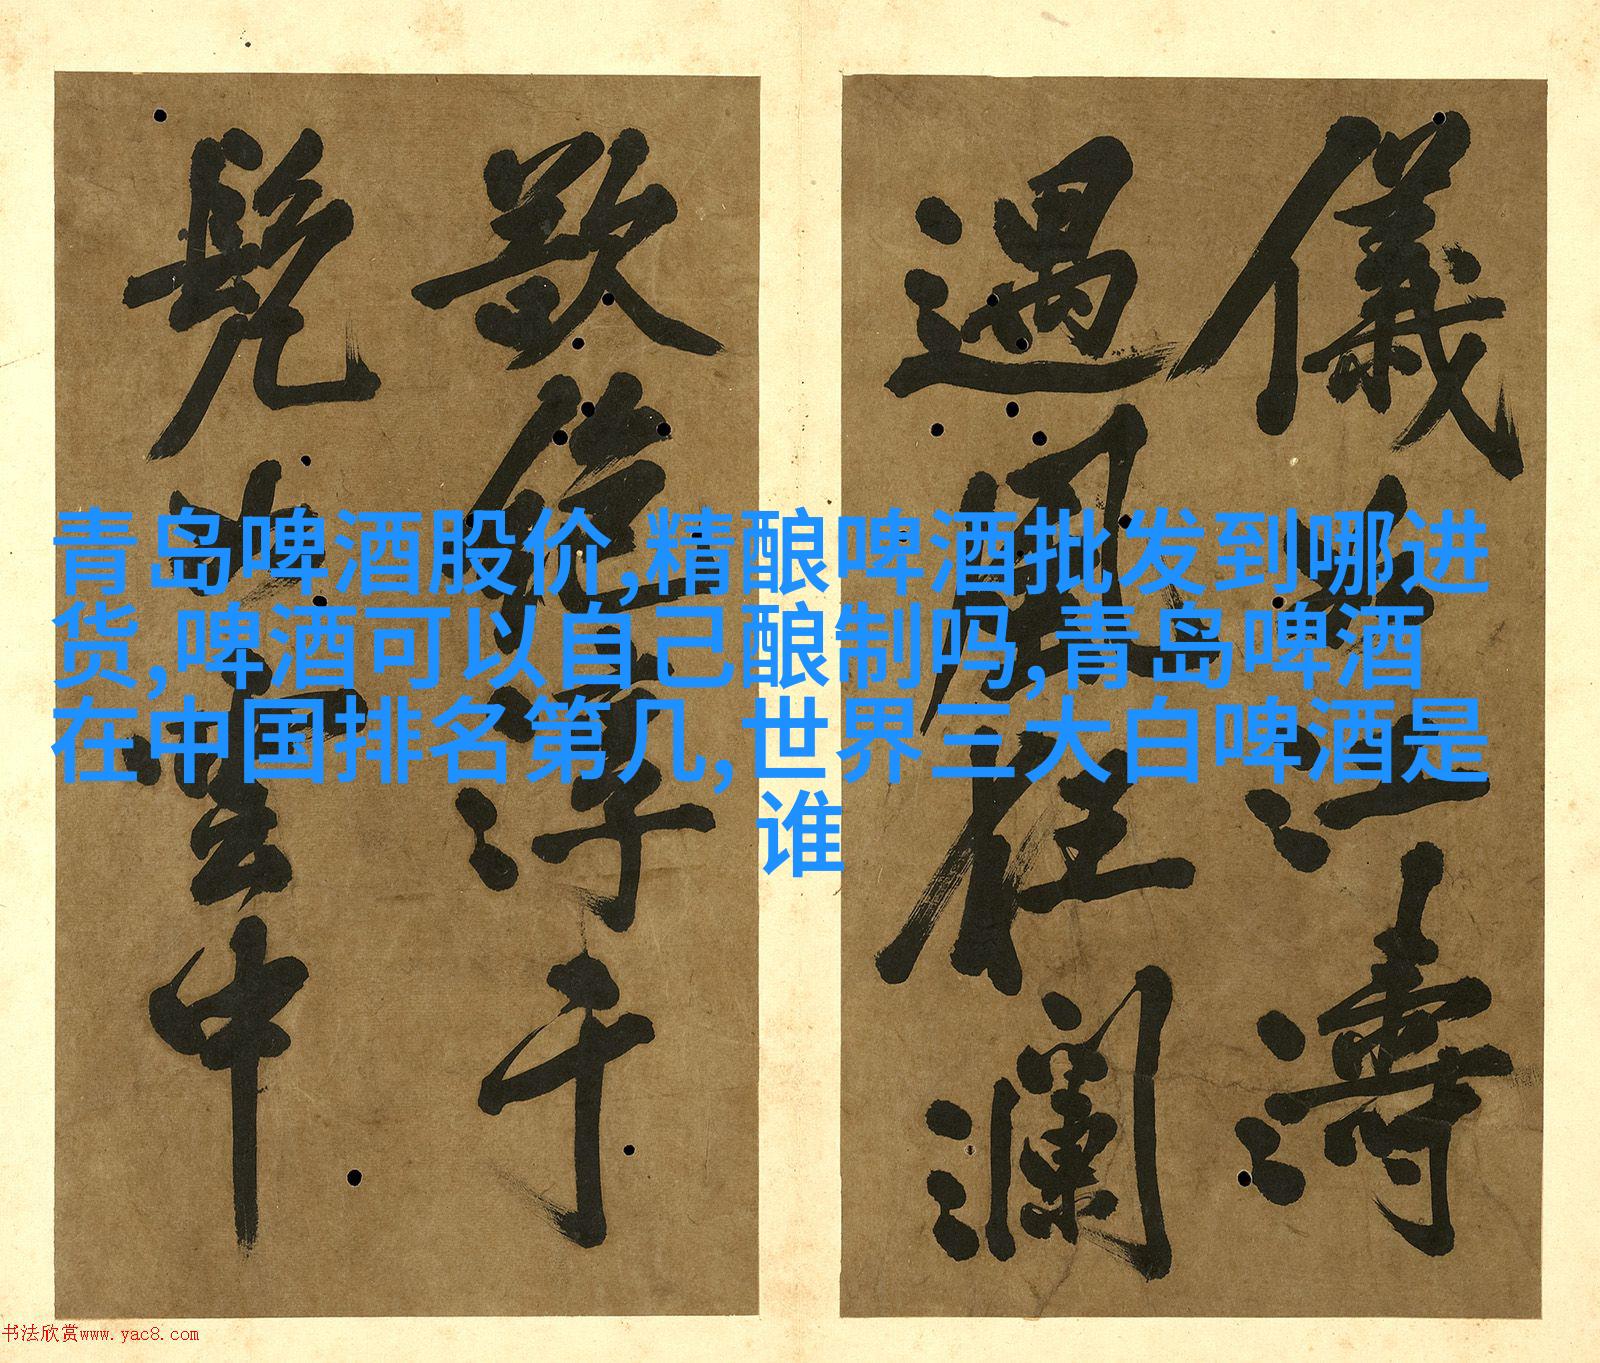 青岛啤酒股价,精酿啤酒批发到哪进
货,啤酒可以自己酿制吗,青岛啤酒
在中国排名第几,世界三大白啤酒是
谁
儀江濤
過瀾
浮于
山雲中
书法欣赏www.yac8.com